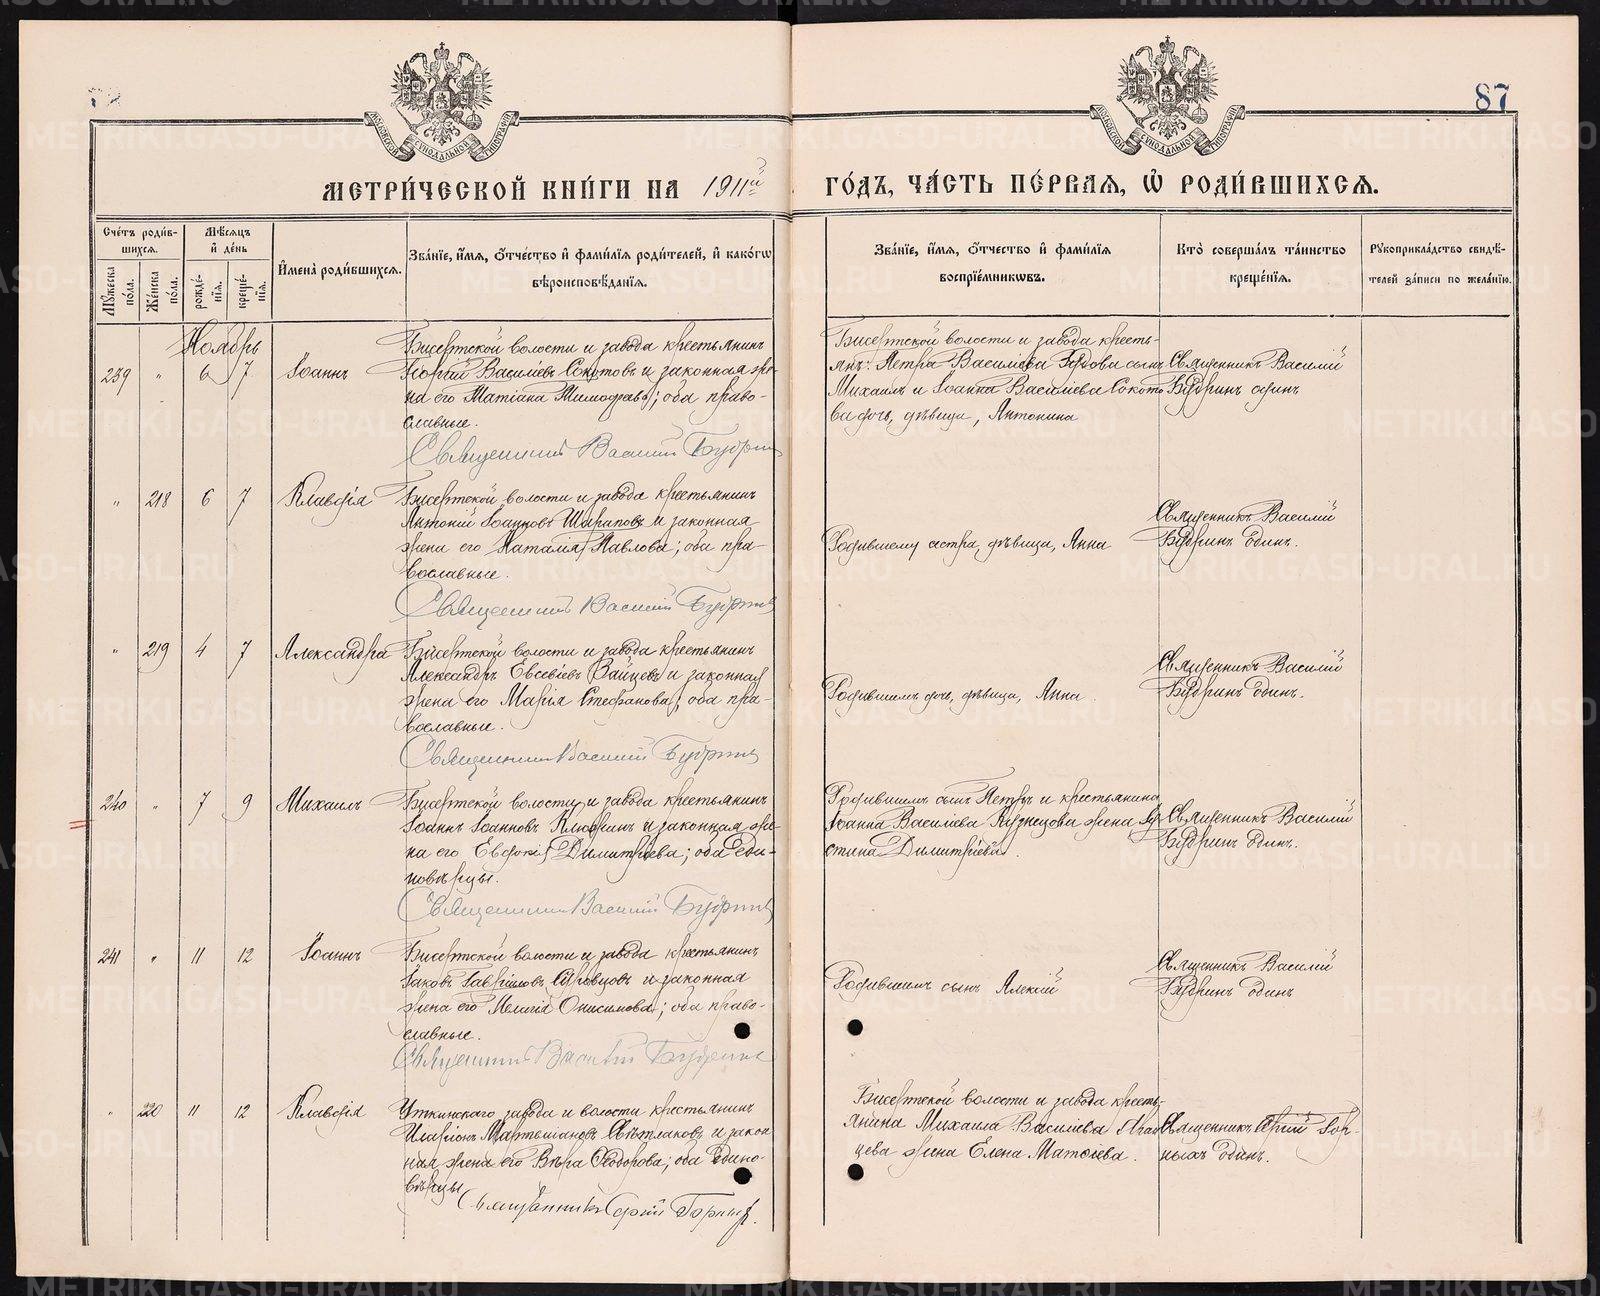 87
МЕТРИ́ЧЕСКОЙ КНИ́ГИ НА 1911й ГО́ДЪ, ЧА́СТЬ ПЕ́РВАЯ, Ѡ РОДИ́ВШИХСЯ.
Сче́тъ роди́в-
шихся.
Мѣ́сяцъ
и҆ де́нь
Мꙋ́жеска
по́ла.
Же́нска
по́ла.
рожде́-
нїя.
креще́-
нїя.
И҆мена̀ роди́вшихся.
Зва́нїе, и҆́мя, ѻ҆́тчество и҆ фами́лїя роди́телей, и҆ како́гѡ
вѣроисповѣ́данїя.
Зва́нїе, и҆́мя, ѻ҆́тчество и҆ фами́лїя
воспрїе́мникѡвъ.
Кто̀ соверша́лъ та́инство
креще́нїя.
Рꙋкоприкла́дство свидѣ́-
телей за́писи по жела́нїю.
Ноябрь
239 " 6 7 Іоаннъ
Бисертской волости и завода крестьянинъ
Георгій Василіевъ Сокотовъ и законная же-
на его Татіана Тимофеева; оба право-
славные.
Священникъ Василій Будринъ
Бисертской волости и завода кресть-
янъ: Петра Василіева сынъ
Михаилъ и Іоанна Василіева Сокото-
ва дочь, дѣвица, Антонина
Священникъ Василій
Будринъ одинъ
" 218 6 7 Клавдія
Бисертской волости и завода крестьянинъ
Антоній Іоанновъ Шараповъ и законная
жена его Наталія Павлова; оба пра-
вославные.
Священникъ Василій Будринъ
Родившему сестра, дѣвица, Анна
Священникъ Василій
Будринъ одинъ.
" 219 4 7 Александра
Бисертской волости и завода крестьянинъ
Александръ Евсевіевъ Зайцевъ и законная
жена его Марія Стефанова; оба пра-
вославные.
Священникъ Василій Будринъ
Родившимъ дочь, дѣвица, Анна.
Священникъ Василій
Будринъ одинъ.
240 " 7 9 Михаилъ
Бисертской волости и завода крестьянинъ
Іоаннъ Іоанновъ Клюкинъ и законная же-
на его Евдокія Димитріева; оба еди-
новѣрцы.
Священникъ Василій Будринъ
Родившимъ сынъ Петръ и крестьянина
Іоанна Василіева Кузнецова жена Іу-
стина Димитріева.
Священникъ Василій
Будринъ одинъ.
241 " 11 12 Іоаннъ
Бисертской волости и завода крестьянинъ
Іаковъ Гавріиловъ и законная
жена его Пелагія Онисимова; оба право-
славные.
Священникъ Василій Будринъ
Родившимъ сынъ Алексій
Священникъ Василій
Будринъ одинъ
" 220 11 12 Клавдія
Уткинскаго завода и волости крестьянинъ
Иларіонъ Мартиніановъ Свѣтлаковъ и закон-
ная жена его Вѣра Ѳедорова; оба едино-
вѣрцы
Священникъ Сергій Горныхъ.
Бисертской волости и завода кресть-
янина Михаила Василіева
жена Елена Матѳіева.
Священникъ Сергій Гор-
ныхъ одинъ.
METRIKI.GASO-URAL.RU